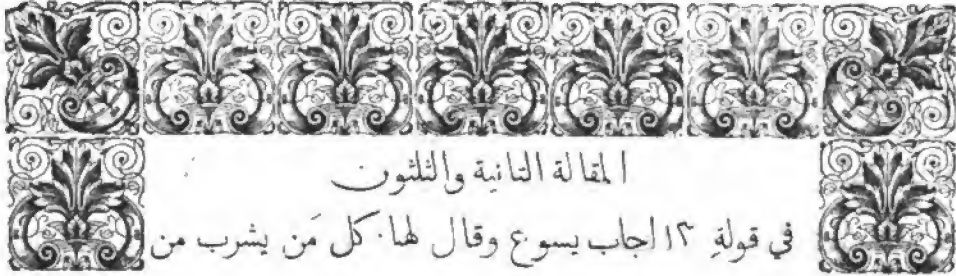 المقالة الثانية والثلثون
في قولهِ ١٣ اجاب يسوع وقال لها. كل مَن يشرب من